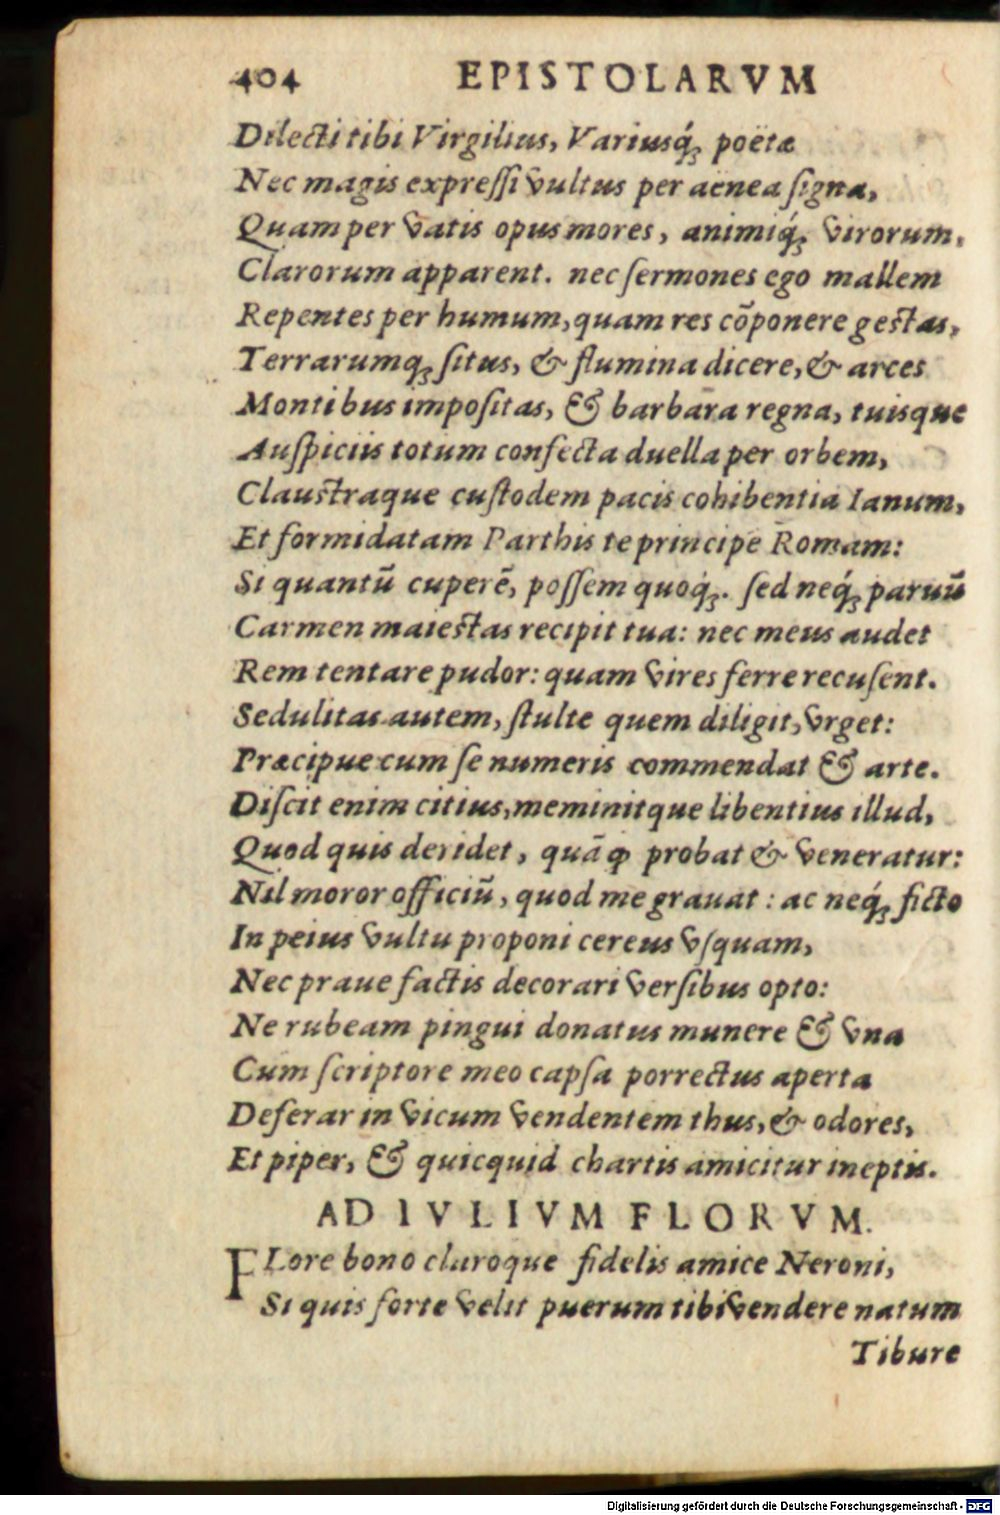 404 EPISTOLARVM
Dilecti tibi Virgilius, Variusq́; poëtæ
Nec magis expreſſi vultus per aenea ſigna,
Quam per vatis opus mores, animiq́; virorum,
Clarorum apparent. nec ſermones ego mallem
Repentes per humum, quam res cõponere geſtas,
Terrarumq; ſitus, & flumina dicere, & arces
Montibus impoſitas, & barbara regna, tuisque
Auſpiciis totum confecta duella per orbem,
Clauſtraque cuſtodem pacis cohibentia Ianum,
Et formidatam Parthis te principe Romam:
Si quantũ cuperẽ, poſſem quoq́;. ſed neq́; paruũ
Carmen maieſtas recipit tua: nec meus audet
Rem tentare pudor: quam vires ferre recuſent.
Sedulitas autem, ſtulte quem diligit, vrget:
Præcipue cum ſe numeris commendat & arte.
Diſcit enim citius, meminitque libentius illud,
Quod quis deridet, quã ꝙ probat & veneratur:
Nil moror officiũ, quod me grauat: ac neq́; ficto
In peius vultu proponi cereus vſquam,
Nec praue factis decorari verſibus opto:
Ne rubeam pingui donatus munere & vna
Cum ſcriptore meo capſa porrectus aperta
Deferar in vicum vendentem thus, & odores,
Et piper, & quicquid chartis amicitur ineptis.
AD IVLIVM FLORVM.
FLore bono claroque fidelis amice Neroni,
Si quis forte velit puerum tibi vendere natum
Tibure
Digitalisierung gefördert durch die Deutsche Forschungsgemeinschaft - DFG